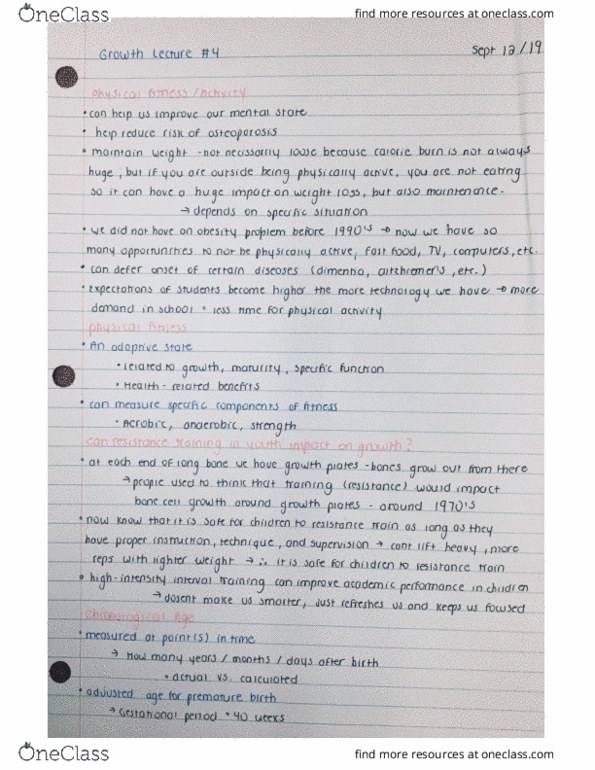 OneClass
find more resources at oneclass.com
Growth Lecture #4
Sept 12/19
physical fitness/Activity
• can help us improve our mental state
• help reduce risk of osteoporosis
• maintain weight - not necissarily loose because calorie burn is not always
huge, but if you are outside being physically active, you are not eating
so it can have a huge impact on weight loss, but also maintenance.
→ depends on specific situation
• we did not have an obesity problem before 1990's → now we have so
many opportunities to not be physically active, fast food, TV, computers, etc.
• can defer onset of certain diseases (dimentia, altzhiemer's, etc.)
• expectations of students become higher the more technology we have → more
demand in school = less time for physical activity
physical fitness
• An adaptive state
• related to growth, maturity, specific function
• Health - related benefits
• can measure specific components of fitness
- Aerobic, anaerobic, strength
can resistance training in youth impact on growth?
• at each end of long bone we have growth plates - bones grow out from there
→ people used to think that training (resistance) would impact
bone cell growth around growth plates - around 1970's
• now know that it is safe for children to resistance train as long as they
have proper instruction, technique, and supervision → cant lift heavy, more
reps with lighter weight → ∴ it is safe for children to resistance train
• high-intensity interval training can improve academic performance in children
→ dosent make us smarter, just refreshes us and keeps us focused
Chronological Age
• measured at point(s) in time
→ How many years / months / days after birth
• actual vs. calculated
• adjusted age for premature birth
→ Gestational period = 40 weeks
OneClass
find more resources at oneclass.com